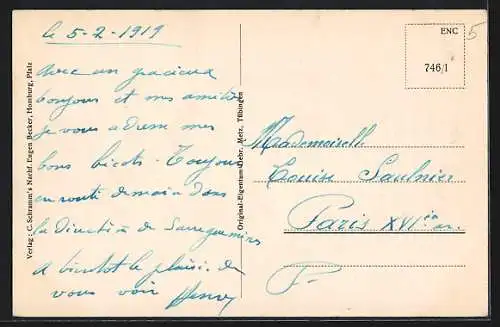 le 5-2-1919
Avec un gracieux
bonjour et mes amitiés
je vous adresse mes
bons Toujours
en route demain dans
la direction de Sarreguemines
A bientôt le plaisir de
vous voir Henry
Verlag: C. Schramm's Nachf. Eugen Becker, Homburg, Pfalz
Original-Eigentum Gebr. Metz, Tübingen
ENC
746/1
5
Mademoiselle
Louise Saulnier
Paris XVI